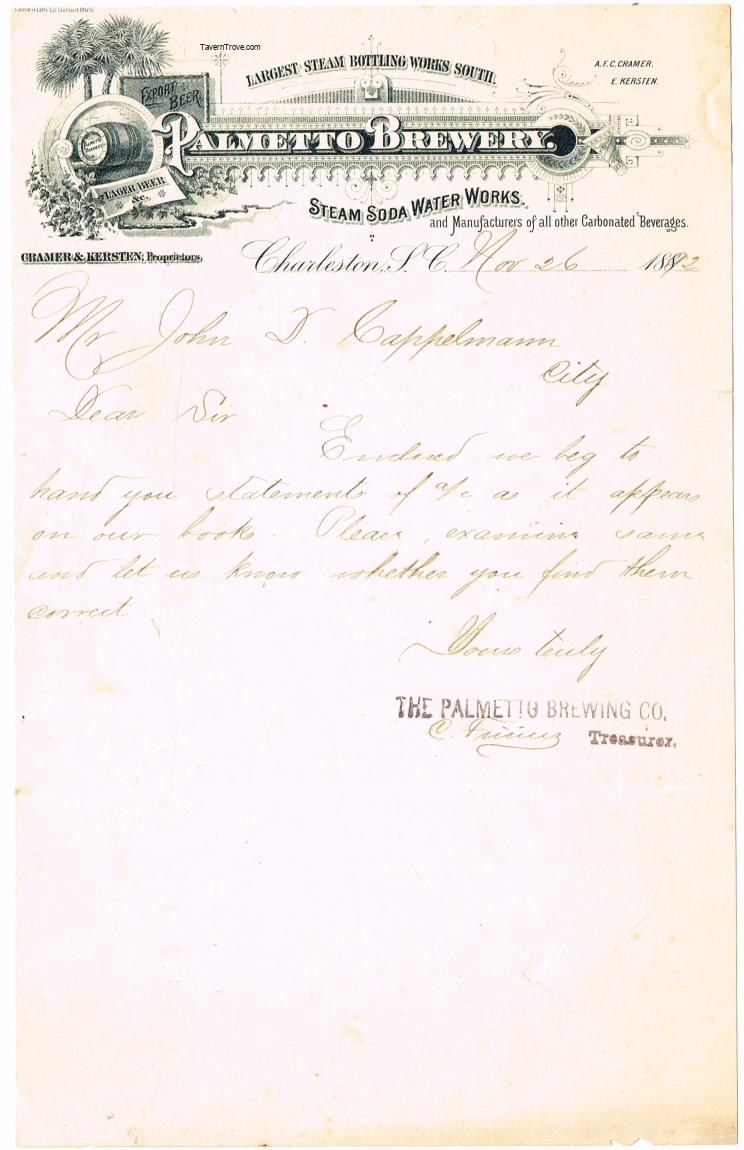 Calvert Lith. Co. Detroit Mich.
TavernTrove.com
LARGEST STEAM BOTTLING WORKS SOUTH.
A.F.C. CRAMER.
E. KERSTEN.
EXPORT BEER.
PALMETTO BREWERY
PALMETTO BREWERY.
LAGER BEER &c.
STEAM SODA WATER WORKS.
and Manufacturers of all other Carbonated Beverages.
CRAMER & KERSTEN, Proprietors.
Charleston, S. C. Nov 26 1892
Mr John D. Cappelmann
City
Dear Sir
Enclosed we beg to
hand you statements of a/c as it appears
on our books. Please examine same
and let us know whether you find them
correct
Yours truly
THE PALMETTO BREWING CO.
C. Treasurer.